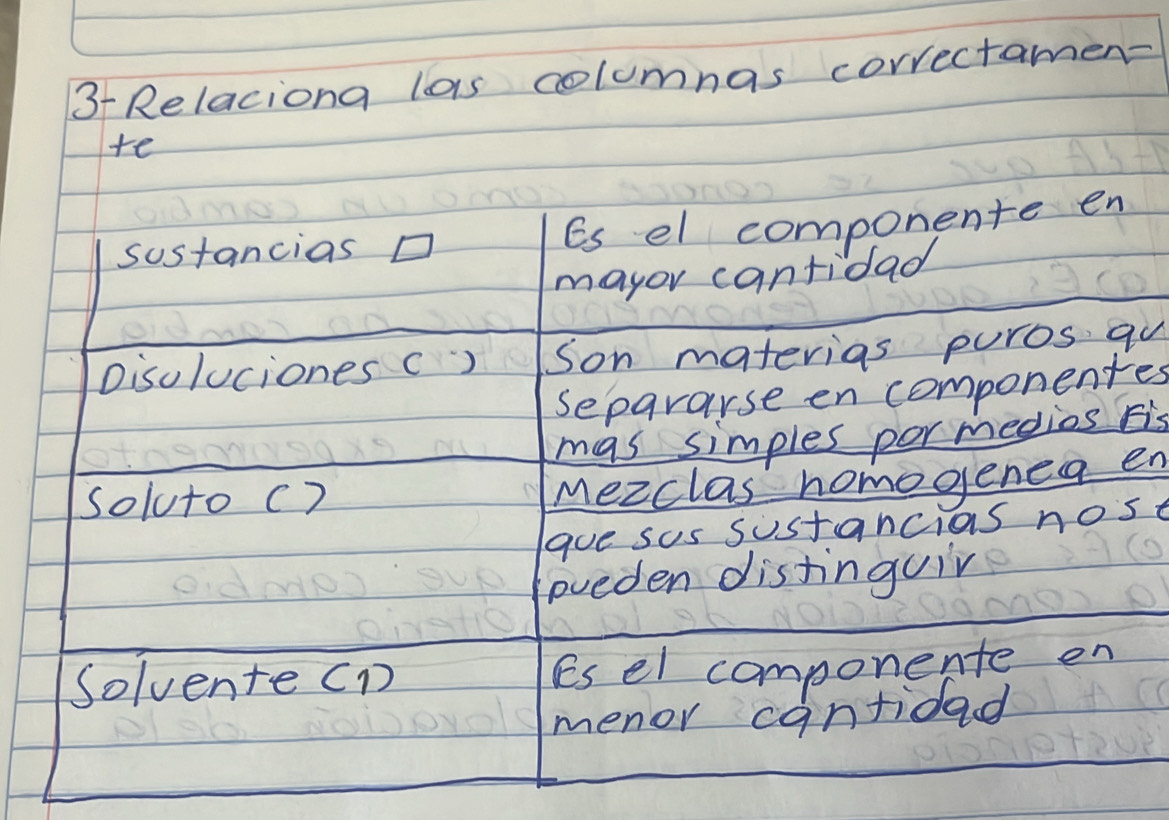 3-Relaciona las columnas correctamen-
te
sustancias □
Es el componente en
mayor cantidad
Disoluciones ( )
Son materias puros qu
separarse en componentes
mas simples por medios Fís
Soluto ( )
Mezclas homogenea en
que sus sustancias no se
pueden distinguir
Solvente (1)
Es el componente en
menor cantidad